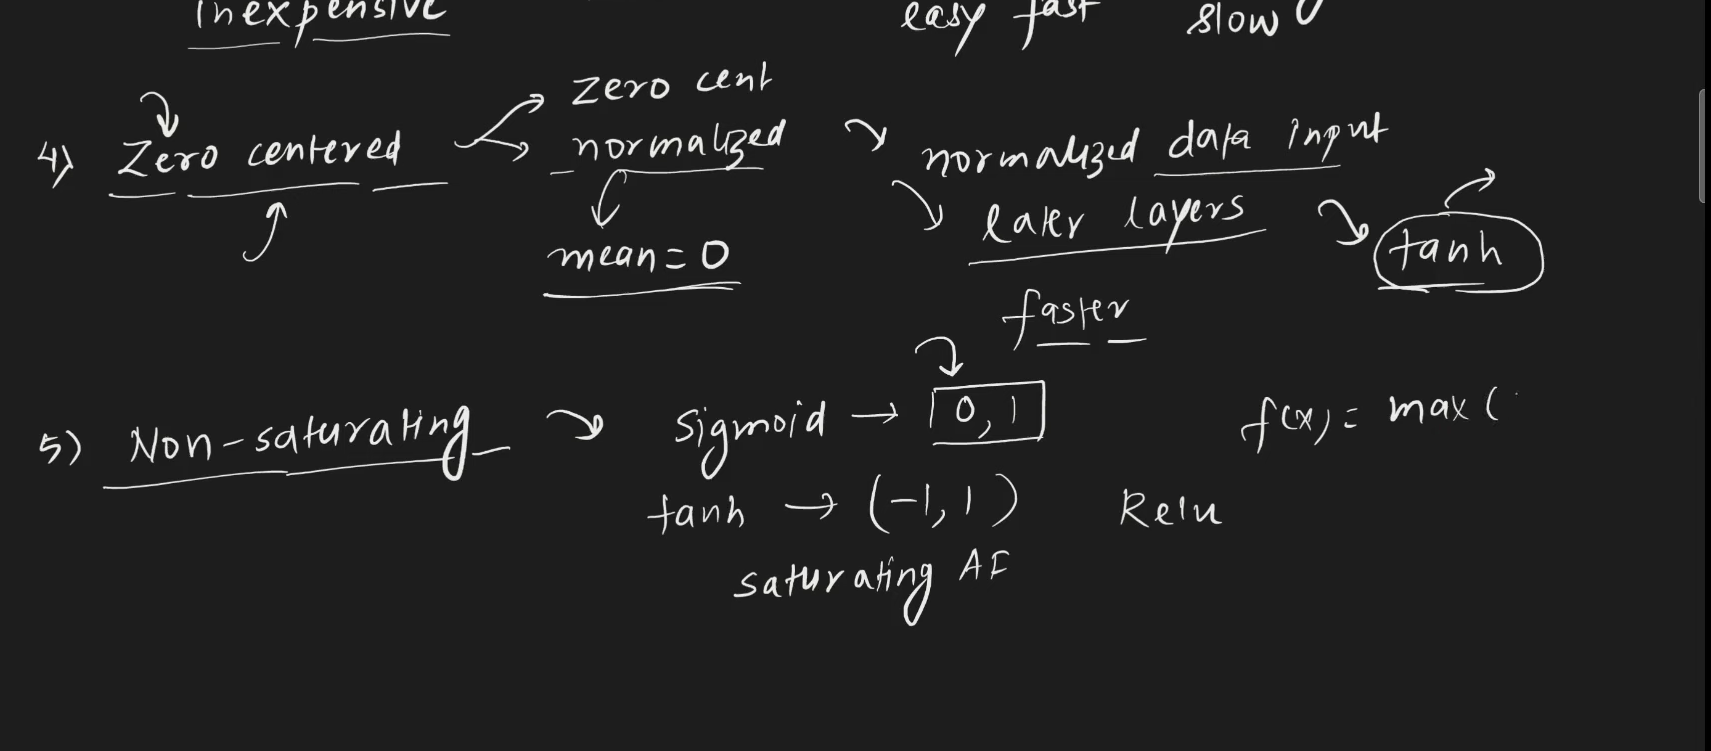 Inexpensive easy fast slow
zero cent
4) Zero centered normalized normalized data input
later layers
mean = 0 tanh
faster
5) Non-saturating sigmoid → [0, 1] f(x) = max (
tanh → (-1, 1) Relu
saturating AF